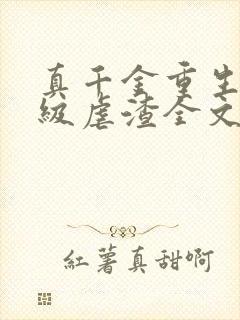 真千金重生
级虐渣全文
红薯真甜啊